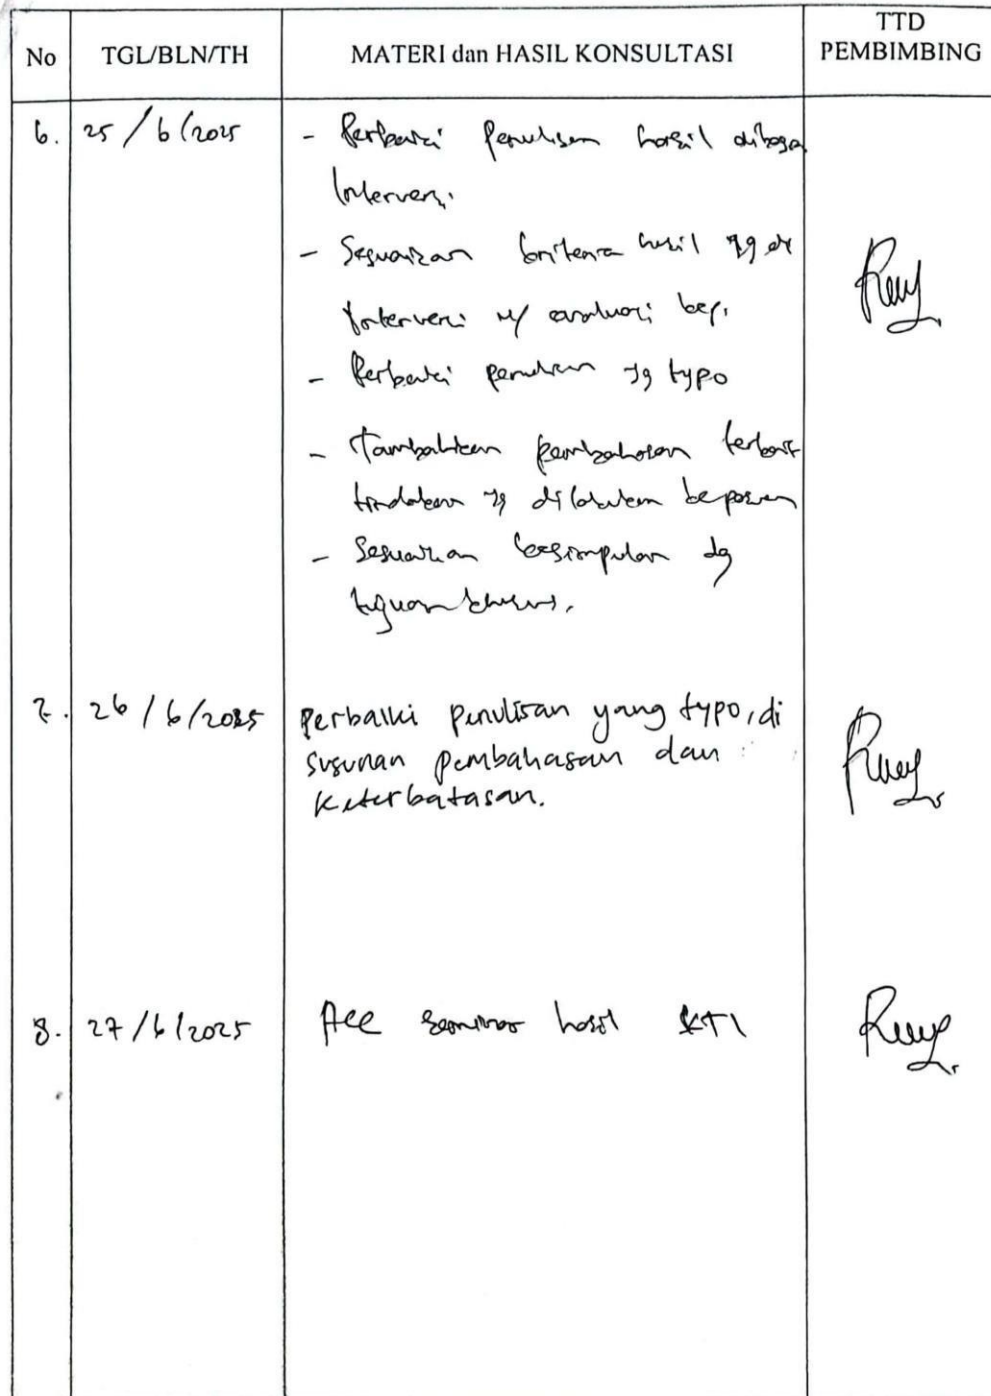 No TGL/BLN/TH MATERI dan HASIL KONSULTASI TTD PEMBIMBING
6. 25/6/2025 - Perbaiki penulisan hasil
Intervensi
- Sesuaikan kriteria hasil yg di
Intervensi
- Perbaiki penulisan yg typo
- Tambahkan pembahasan terkait
tindakan yg dilakukan ke pasien
- Sesuaikan kesimpulan dg
tujuan khusus.
7. 26/6/2025 Perbaiki penulisan yang typo, di
susunan pembahasan dan
keterbatasan.
8. 27/6/2025 Acc seminar hasil KTI